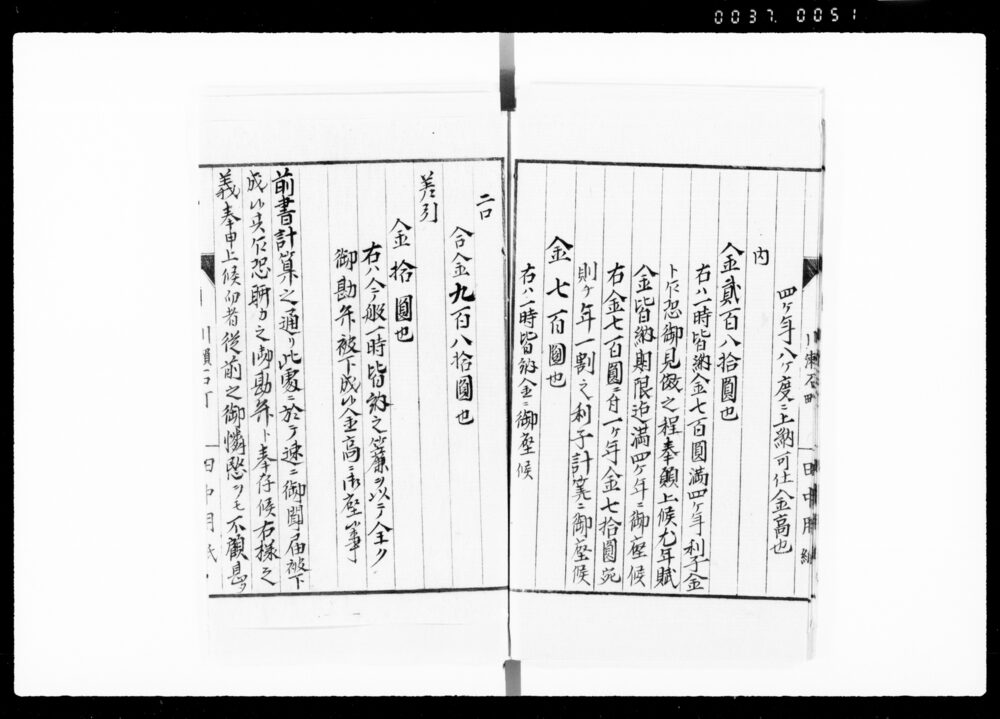 0037 0051
四ヶ年八ヶ度ニ上納可仕金高也
内
金貳百八拾圓也
右ハ一時皆納金七百圓満四ヶ年利子金
ト乍恐御見做之程奉願上候尤年賦
金皆納期限迄満四ヶ年ニ御座候
右金七百圓ニ付一ヶ年金七拾圓宛
則ヶ年一割之利子計算ニ御座候
金七百圓也
右ハ一時皆納金ニ御座候
二口
合金九百八拾圓也
差引
金拾圓也
右ハ今般一時皆納之簾ヲ以テ全ク
御勘弁被下成候金高ニ御座候事
前書計算之通リ此處ニ於テ速ニ御聞届被下
成候共乍恐聊カ之御勘弁ト奉存候右様之
義奉申上候而者従前之御憐愍ヲモ不顧
田中